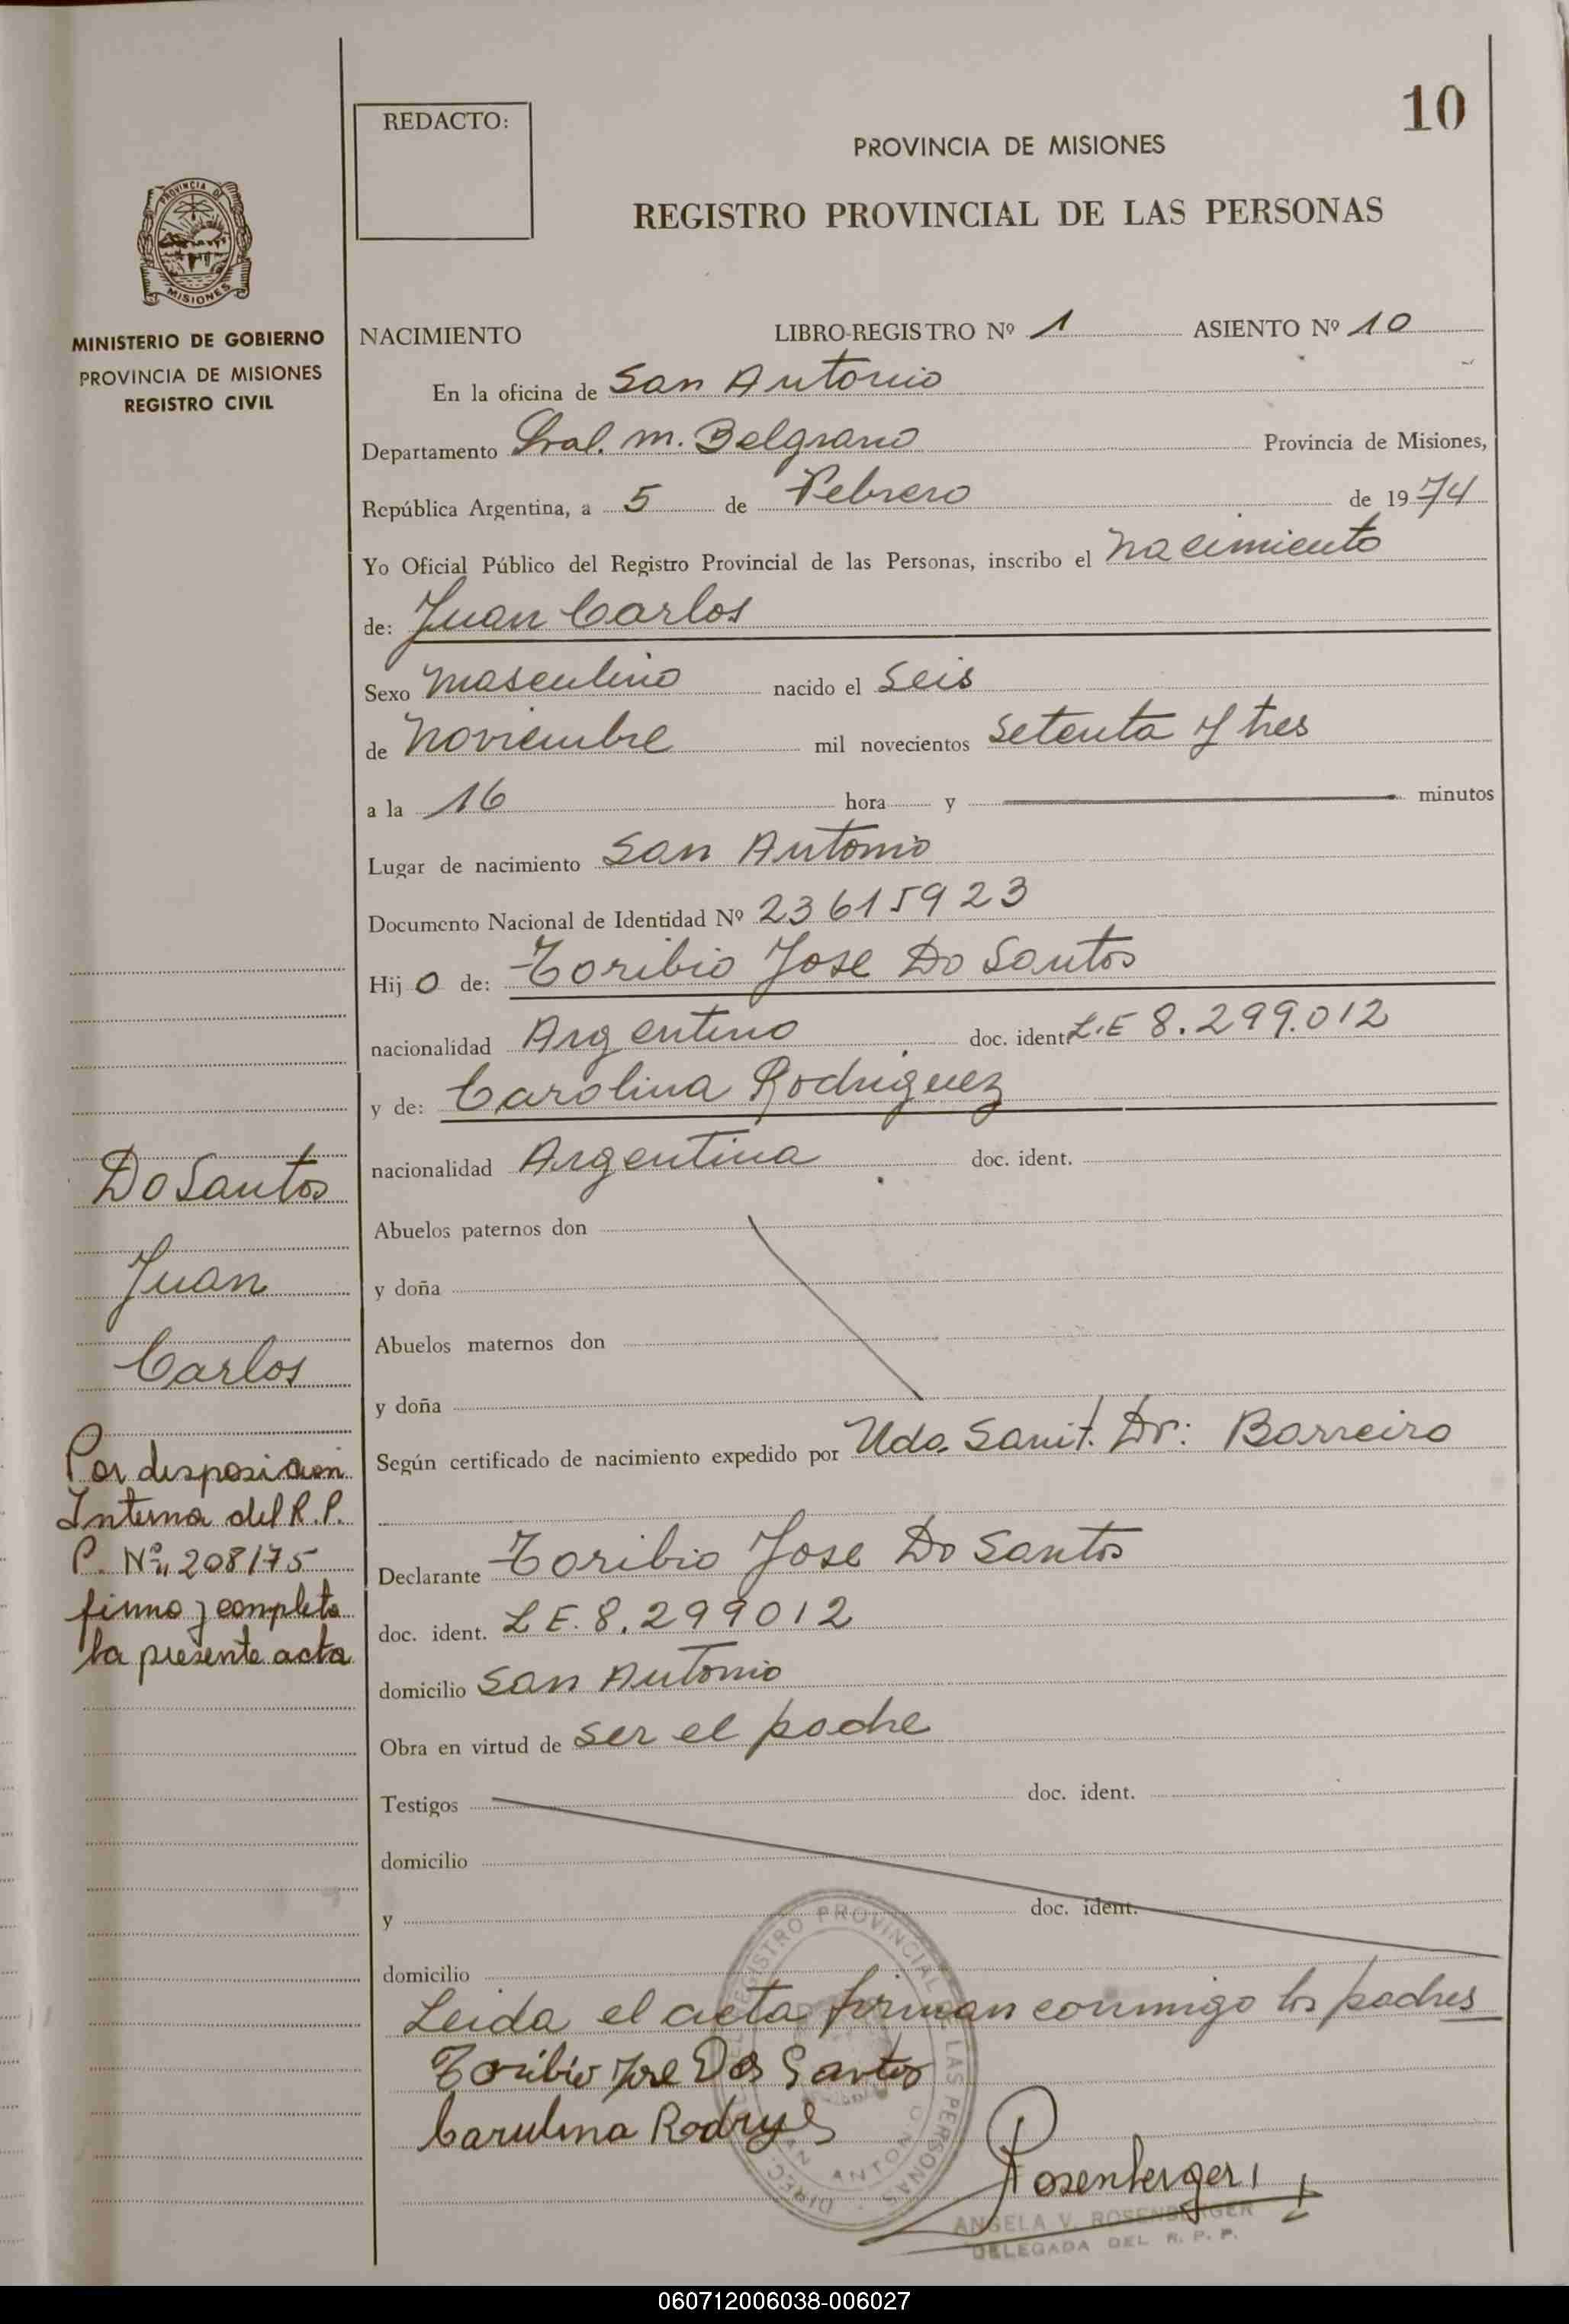 10
REDACTO:
PROVINCIA DE MISIONES
REGISTRO PROVINCIAL DE LAS PERSONAS
PROVINCIA DE
MISIONES
MINISTERIO DE GOBIERNO
PROVINCIA DE MISIONES
REGISTRO CIVIL
NACIMIENTO LIBRO-REGISTRO Nº 1 ASIENTO Nº 10
En la oficina de San Antonio
Departamento Gral. M. Belgrano Provincia de Misiones,
República Argentina, a 5 de Febrero de 1974
Yo Oficial Público del Registro Provincial de las Personas, inscribo el nacimiento
de: Juan Carlos
Sexo masculino nacido el Seis
de noviembre mil novecientos setenta y tres
a la 16 hora y minutos
Lugar de nacimiento San Antonio
Documento Nacional de Identidad Nº 23615923
Hijo de: Toribio Jose Do Santos
nacionalidad Argentino doc. ident. L.E 8.299.012
y de: Carolina Rodriguez
nacionalidad Argentina doc. ident.
Abuelos paternos don
y doña
Abuelos maternos don
y doña
Según certificado de nacimiento expedido por Uda. Sanit. Dr: Barreiro
Declarante Toribio Jose Do Santos
doc. ident. L E. 8.299012
domicilio San Antonio
Obra en virtud de ser el padre
Testigos doc. ident.
domicilio
y doc. ident.
domicilio
Leida el acta firman conmigo los padres
Toribio Jose Dos Santos
Carulina Rodryes
Rosenberger
ANGELA V. ROSENBERGER
DELEGADA DEL R. P. P.
DIREC. DEL REGISTRO PROVINCIAL DE LAS PERSONAS
SAN ANTONIO
Do Santos
Juan
Carlos
Por disposicion
Interna del R.P.
P. Nº 208/75
firmo y completo
la presente acta
060712006038-006027